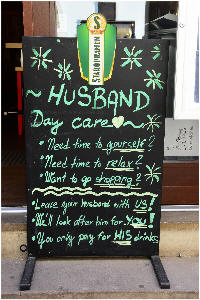 S
STAROBRNO
~ HUSBAND ~
Day care
• Need time to yourself?
• Need time to relax?
• Want to go shopping?
• Leave your husband with US!
• We'll look after him for You!
• You only pay for HIS drinks